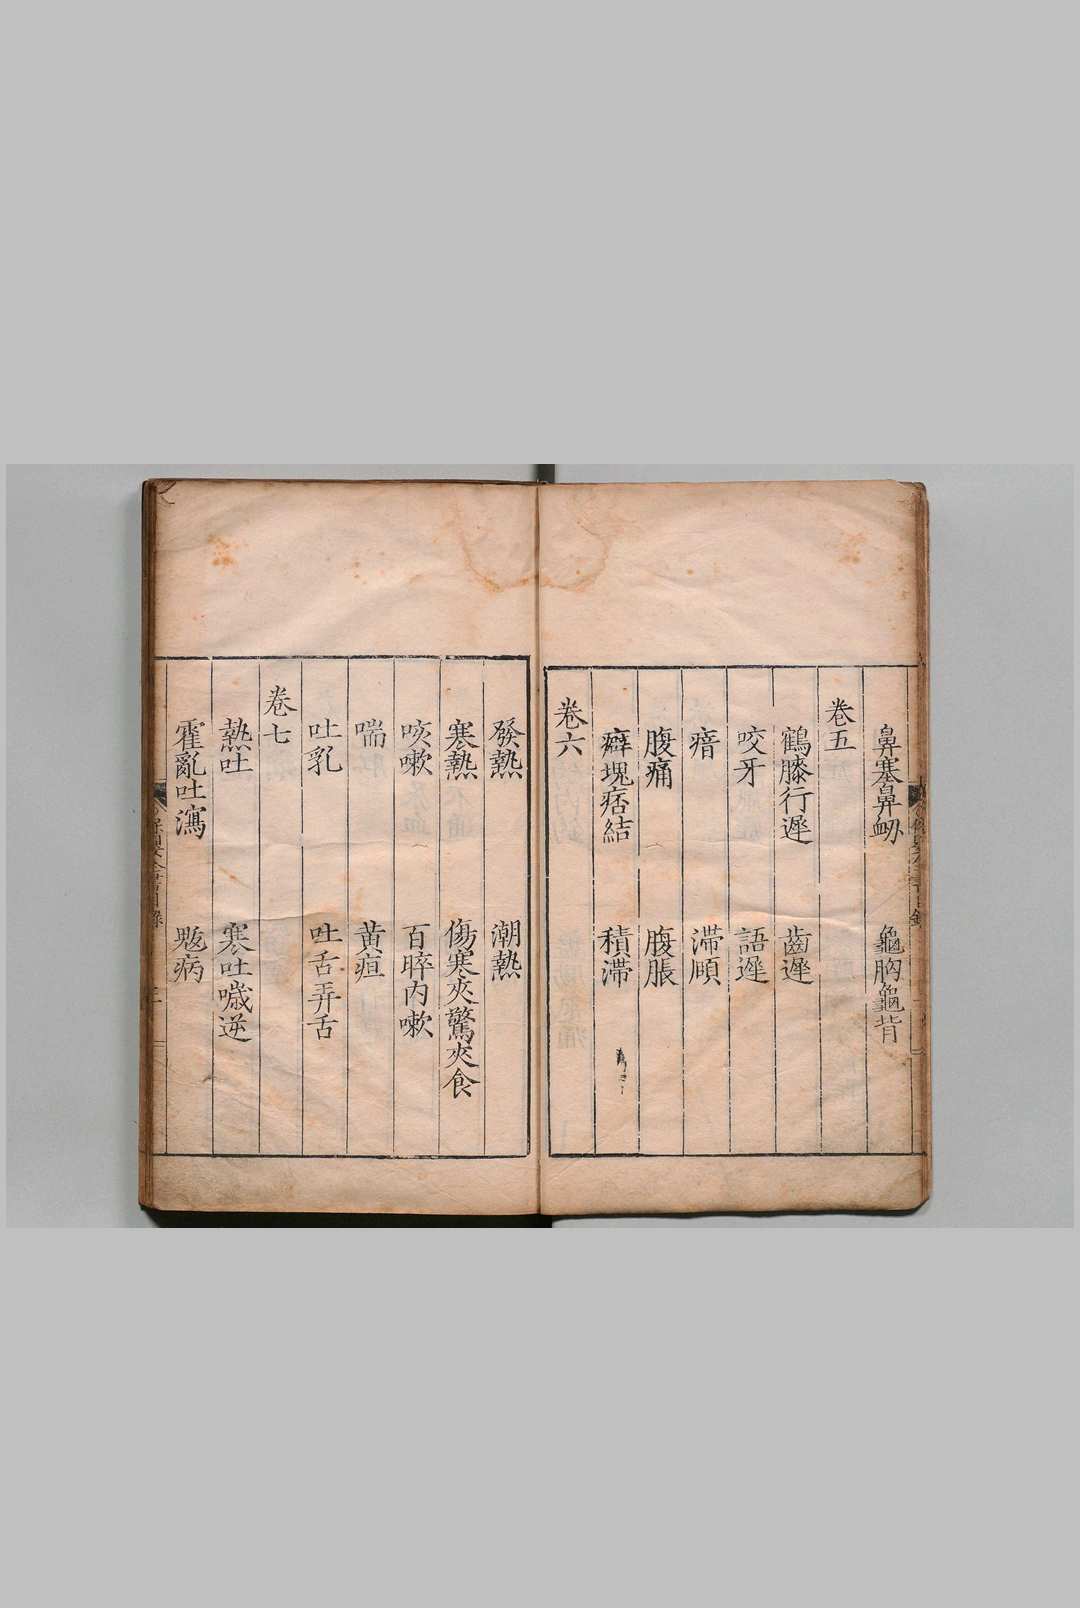 鼻塞鼻衂　龜胸龜背
卷五
鶴膝行遲　齒遲
咬牙　語遲
瘖　滯頤
腹痛　腹脹
癖塊痞結　積滯
卷六
發熱　潮熱
寒熱　傷寒夾驚夾食
咳嗽　百晬內嗽
喘　黃疸
吐乳　吐舌弄舌
卷七
熱吐　寒吐噦逆
霍亂吐瀉　魃病